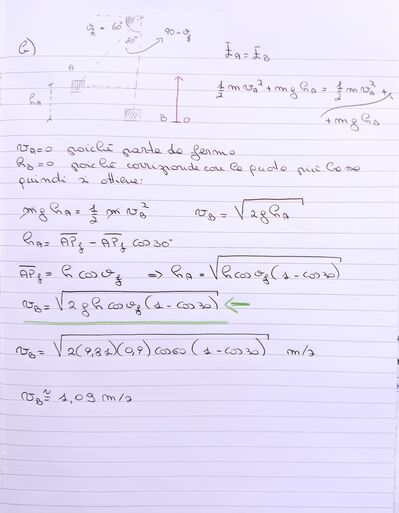 C)
ϑ_f = 60°
30°
90 - ϑ_f
A
h_A
B
0
E_A = E_B
1/2 m v_A² + m g h_A = 1/2 m v_B² +
+ m g h_B
v_A = 0 poiché parte da fermo
h_B = 0 poiché corrisponde con la quota più bassa
quindi si ottiene:
m g h_A = 1/2 m v_B²   v_B = √(2 g h_A)
h_A = AP_f - AP_f cos 30°
AP_f = h cos ϑ_f ⇒ h_A = √(h cos ϑ_f (1 - cos 30))
v_B = √(2 g h cos ϑ_f (1 - cos 30)) ←
v_B = √(2(9,81)(0,9) cos 60 (1 - cos 30)) m/s
v_B ≅ 1,09 m/s